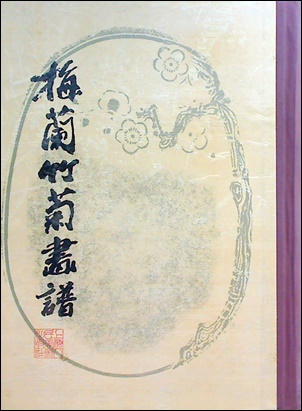 梅蘭竹菊畫譜